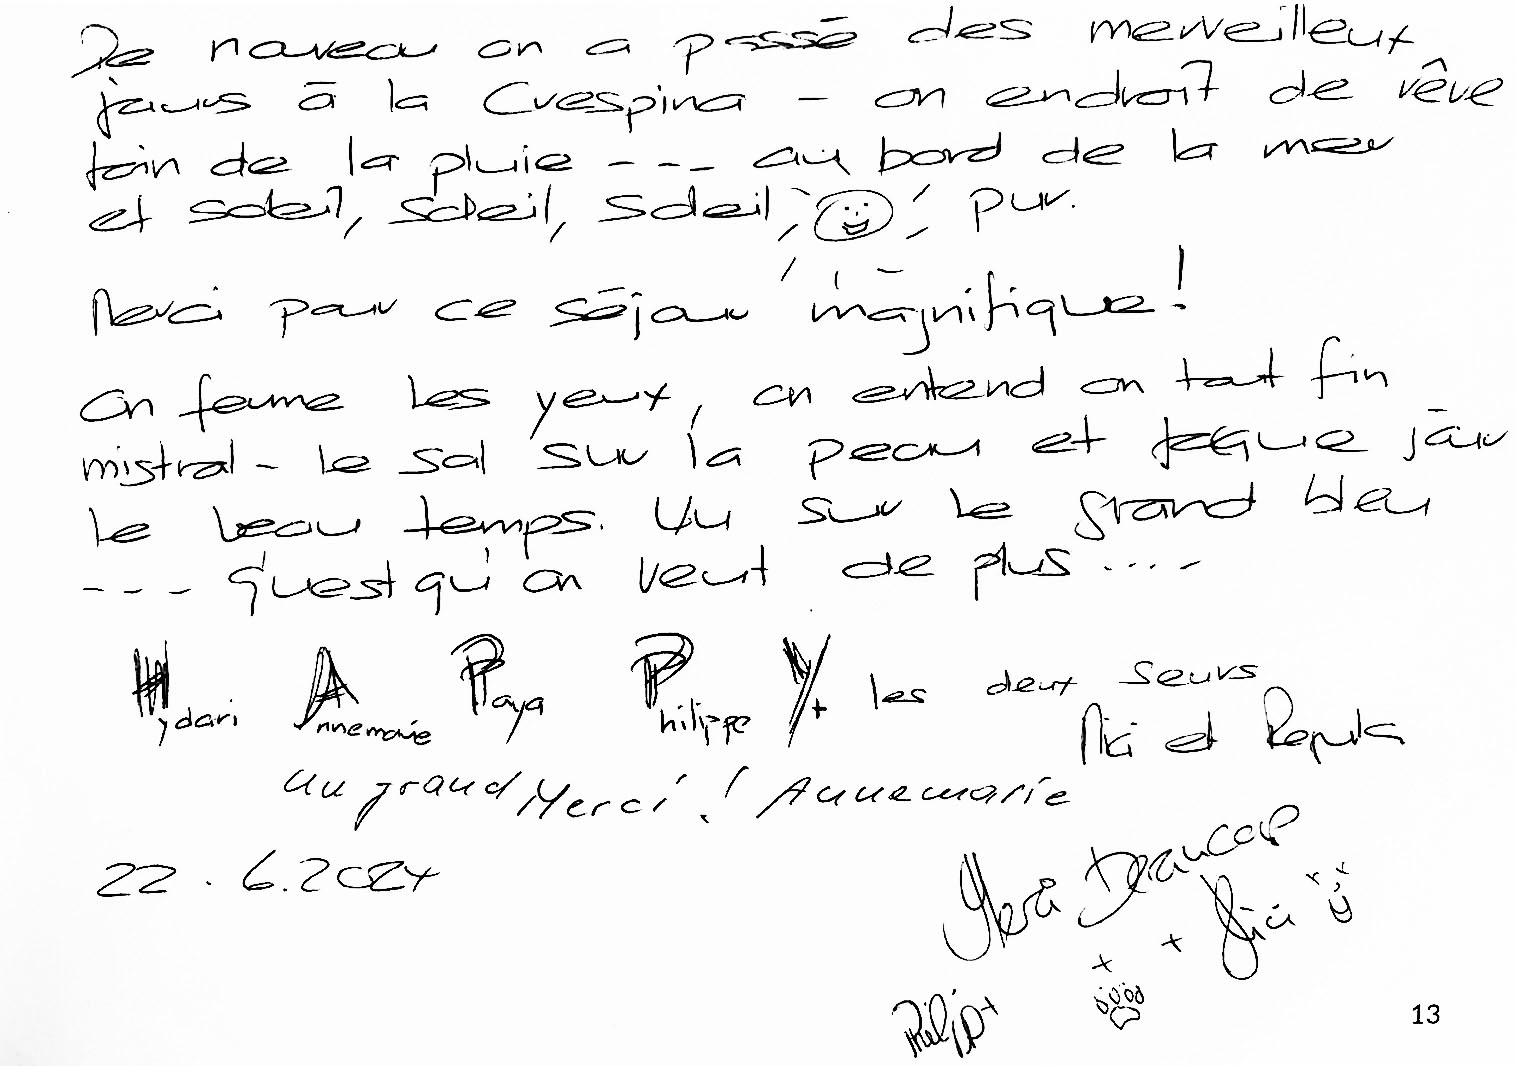 De nouveau on a passé des merveilleux
jours à la Crespina - on endroit de rêve
loin de la pluie --- au bord de la mer
et soleil, soleil, soleil, pur.
Merci pour ce séjour magnifique!
On ferme les yeux, on entend on tout fin
mistral - le sal sur la peau et chaque jour
le beau temps. Vu sur le grand bleu
--- Qu'est qu'on veut de plus ....
Hydari Annemarie Paya Philippe Y+ les deux seurs
Nici et Regula
un grand Merci! Annemarie
22.6.2024
Merci Beaucoup
+ + Nici
Philipp+
13